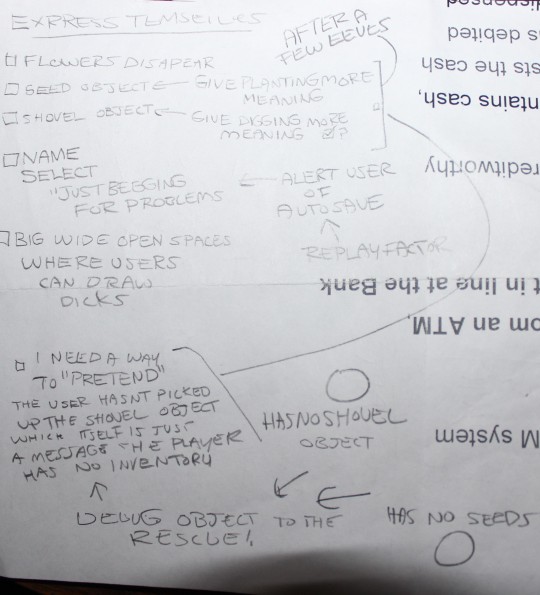 EXPRESS TEMSELVES
AFTER A
FEW LEVELS
FLOWERS DISAPEAR
SEED OBJECT ← GIVE PLANTING MORE
MEANING
SHOVEL OBJECT ← GIVE DIGGING MORE
MEANING
NAME
SELECT
"JUST BEGGING
FOR PROBLEMS
← ALERT USER
OF
AUTOSAVE
↑
REPLAY FACTOR
BIG WIDE OPEN SPACES
WHERE USERS
CAN DRAW
DICKS
I NEED A WAY
TO "PRETEND"
THE USER HASNT PICKED
UP THE SHOVEL OBJECT
WHICH ITSELF IS JUST
A MESSAGE THE PLAYER
HAS NO INVENTORY
HAS NO SHOVEL
OBJECT
↑
DEBUG OBJECT TO THE
RESCUE!
HAS NO SEEDS
M system
om an ATM.
t in line at the Bank
reditworthy
ntains cash,
sts the cash
s debited
dispensed